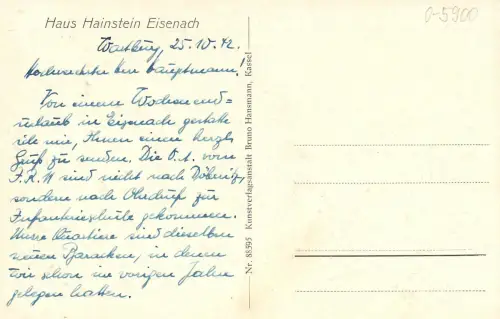 Haus Hainstein Eisenach
O-5900
Wartburg, 25.10.42.
Hochverehrter Herr Hauptmann!
Von einem Wochenend=
urlaub in Eisenach gestatte
ich mir, Ihnen einen herzl.
Gruß zu senden. Die O.A. vom
F.R. sind nicht nach Döberitz,
sondern nach Ohrdruf zur
Infanterieschule gekommen.
Unsre Quartiere sind dieselben
neuen Baracken, in denen
wir schon im vorigen Jahre
gelegen hatten.
Nr. 88395 Kunstverlagsanstalt Bruno Hansmann, Kassel